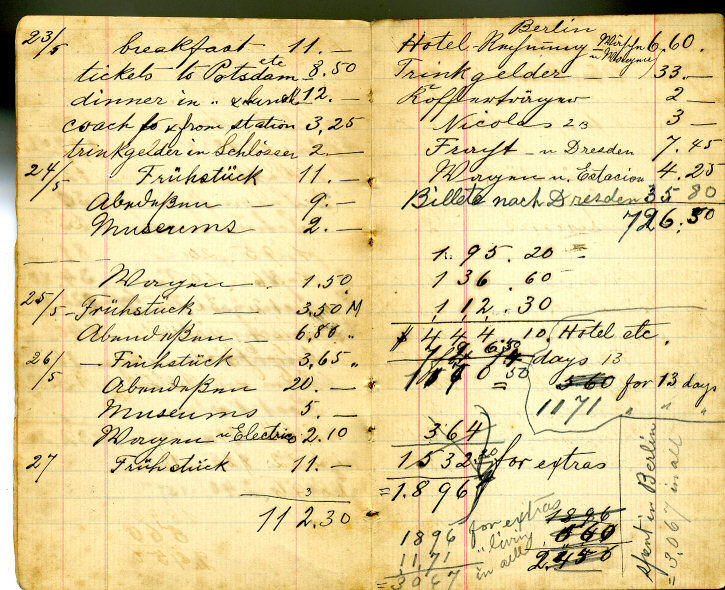 23/5 breakfast 11.—
tickets to Potsdam etc 8.50
dinner in " & lunch 12.—
coach to & from station 3,25
trinkgelder in Schlösser 2.—
24/5 Frühstück 11.—
Abendeßen — 9.—
Museums 2.—
Wagen — 1.50
25/5 Frühstück — 3,50 M
Abendeßen — 6,80 "
26/5 — Frühstück 3,65 "
Abendeßen 20.—
Museums 5.—
Wagen u Electric 2.10
27 Frühstück 11.—
3
112.30
Berlin
Hotel-Rechnung 6.60.
u Wagen
Trinkgelder — 33.—
Kofferträger 2—
Nicolas 23 3—
Fracht — u Dresden 7.45
Wagen u. 4.25
Billete nach Dresden 35 80
726.30
1.95.20
136.60
1,12.30
$ 444.10. Hotel etc.
days 13
50
560 for 13 days
1171 " " "
364
1532 for extras
= 1.896
1896 for extras
11,71 " living
= 3067 in all
1896
560
2.456
spent in Berlin
= 3,067 in all